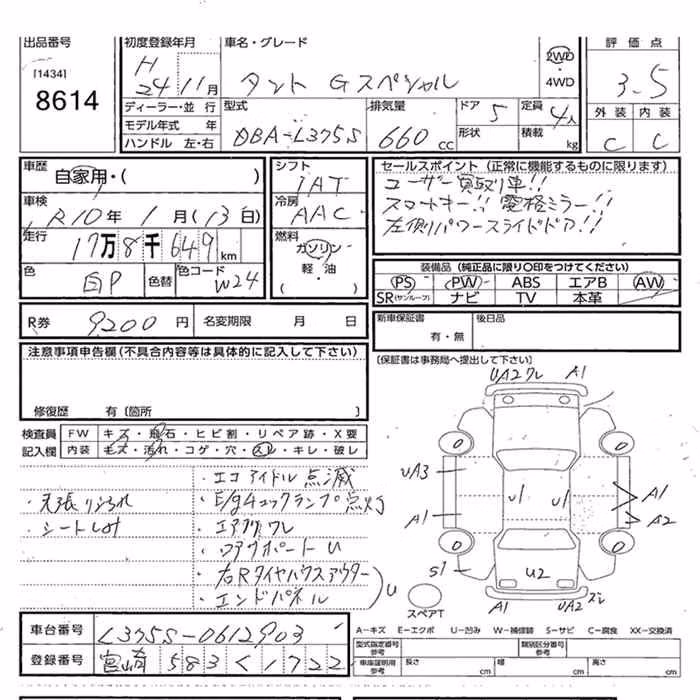 出品番号
[1434]
8614
初度登録年月
H 24 11月
車名・グレード
タント Gスペシャル
2WD
・
4WD
評価点
3.5
外装 内装
C C
ディーラー・並行
モデル年式 年
ハンドル 左・右
型式
DBA-L375S
排気量
660 cc
ドア 5
形状
定員 4人
積載 kg
車歴
自家用・( )
車検
R10年 1月(13日)
走行
17万8千649km
色
白P
色替
色コード
W24
シフト
IAT
冷房
AAC
燃料
ガソリン
・
軽・油
( )
セールスポイント (正常に機能するものに限ります)
ユーザー買取り車!!
スマートキー!! 電格ミラー!!
左側パワースライドドア!!
装備品 (純正品に限り○印をつけてください)
PS PW ABS エアB AW
SR(サンルーフ) ナビ TV 本革
R券 9200円 名変期限 月 日
新車保証書 有・無
後日品
注意事項申告欄(不具合内容等は具体的に記入して下さい)
修復歴 有〔箇所 〕
〔保証書は事務局へ提出して下さい〕
検査員
記入欄
FW キズ・飛石・ヒビ割・リペア跡・X要
内装 キズ・汚れ・コゲ・穴・スレ・キレ・破レ
・天張り汚れ
・シートしみ
・エコアイドル点滅
・E/gチェックランプ点灯
・エアクリ ワレ
・コアサポートU
・右Rタイヤハウスアウター
・エンドパネル
U
UA2 ワレ A1
UA3
A1
S1
U1 U1
A1
A2
U2
A1 UA2 ズレ
スペアT
A-キズ E-エクボ U-凹み W-補修跡 S-サビ C-腐食 XX-交換済
車台番号 L375S-0612903
登録番号 宮崎 583 く 1722
型式指定番号
参考
類別区分番号
参考
車庫証明用
参考
長さ cm 幅 cm 高さ cm